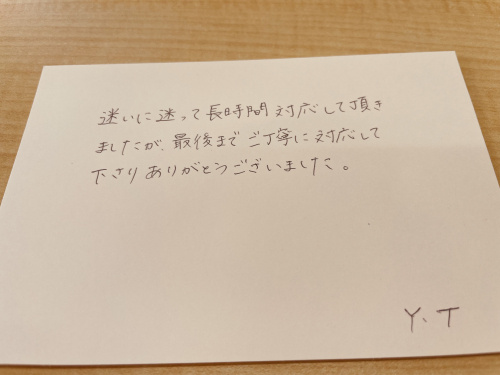 迷いに迷って長時間対応して頂き
ましたが、最後までご丁寧に対応して
下さりありがとうございました。
Y、T